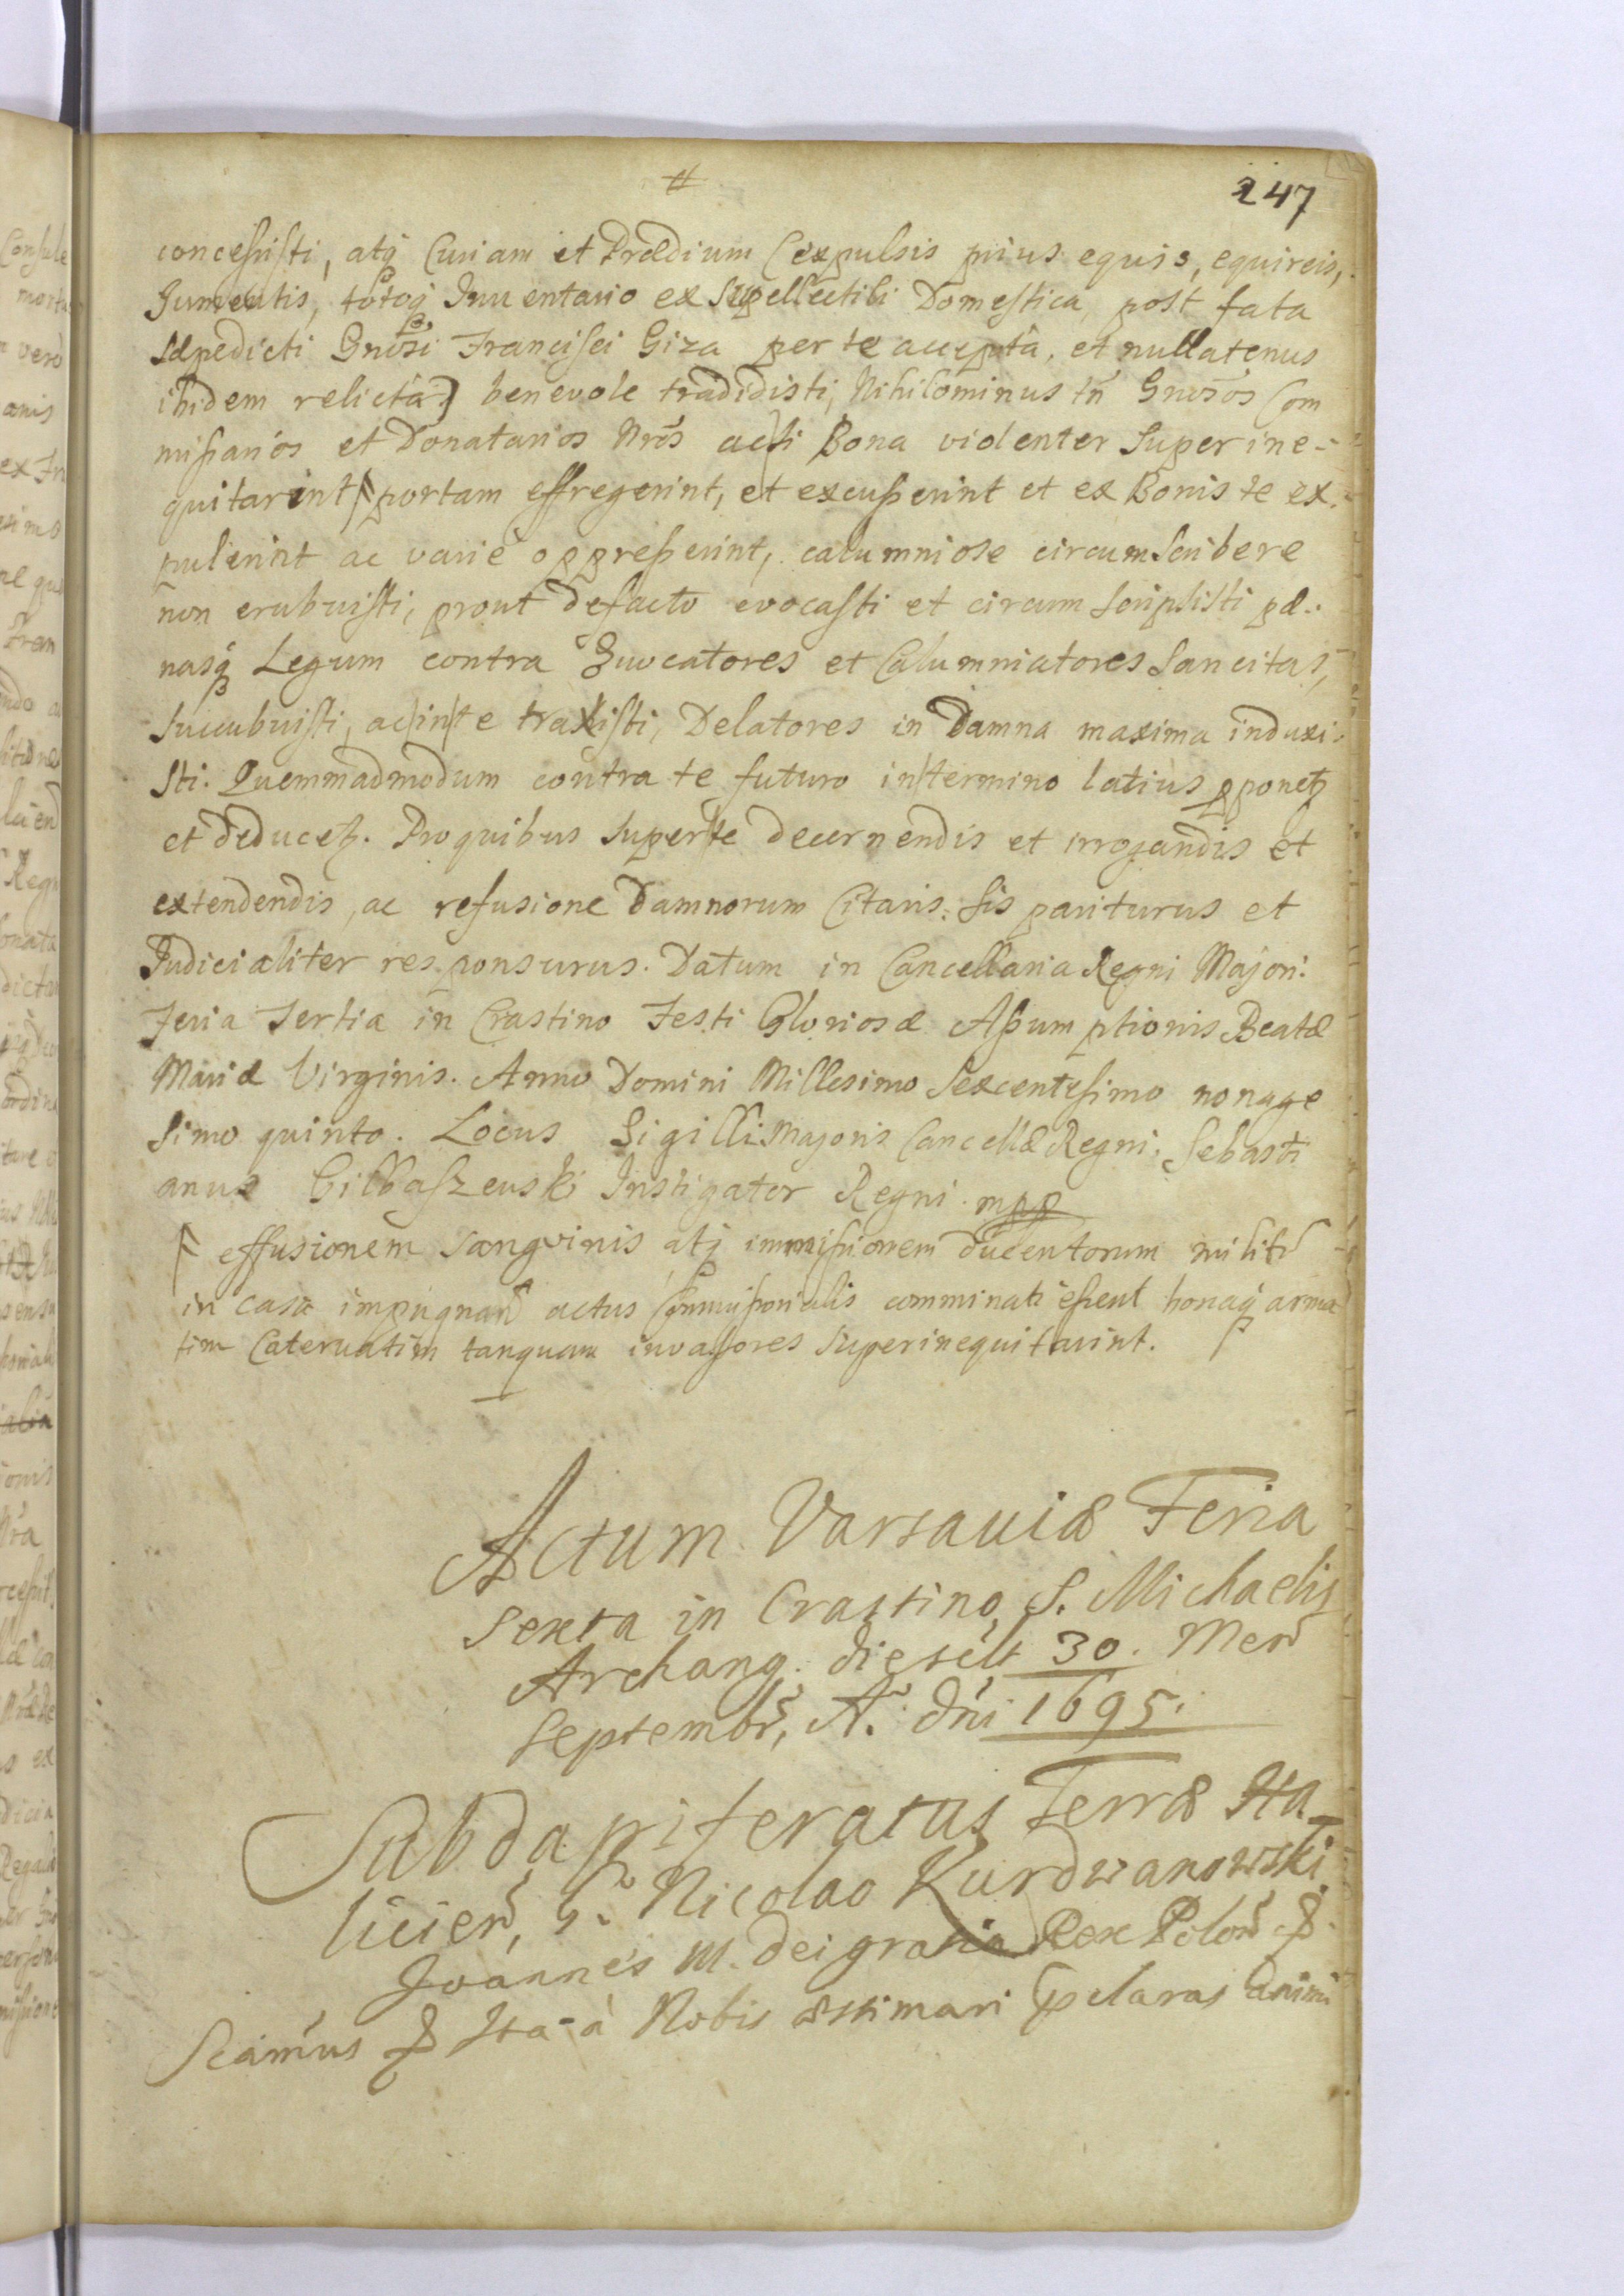 #
247
concessisti, atq̃ Curiam et Prædium (expulsis prius equis, equireis,
Jumentis, totoq̃ Inventario ex Supellectili Domestica, post fata
Sæpedicti Gnõsi Francisci Giza per te acceptâ, et nullatenus
ibidem relictâ:) benevole tradidisti, Nihilominus tñ Gnõsos Com
missarios et Donatarios Nrõs acsi Bona violenter Superine-
quitarint portam effregerint, et excusserint et ex Bonis te ex-
pulerint ac varie oppresserint, calumniose circumscribere
non erubuisti, prout defacto evocasti et circum scripsisti pæ-
nasq̃ Legum contra Evocatores et Calumniatores Sancitas,
Succubuisti, ac in te traxisti, Delatores in Damna maxima induxi-
sti. Quemmadmodum contra te futuro in termino latius pponetꝫ
et deducetꝫ. Pro quibus super te decernendis et irrogandis et
extendendis, ac refusione Damnorum Citaris: Sis pariturus et
Judicialiter responsurus. Datum in Cancellaria Regni Majori:
Feria Tertia in Crastino Festi Gloriosæ Assumptionis Beatæ
Mariæ Virginis. Anno Domini Millesimo Sexcentesimo nonage
simo quinto. Locus Sigilli Majoris Cancellæ Regni. Sebasti
anus Gilbaszewski Instigator Regni mpp
effusionem sangvinis atq̃ immissionem ducentorum milit̃
in casu impugnañ actus Commissorialis comminati essent bonaq̃ arma
tim Catervatim tanquam invasores Superinequitarint.
Actum Varsaviæ Feria
sexta in Crastino S. Michaelis
Archang. die scilt 30. Meñ
Septembr̃, A. dñi 1695.
Subdapiferatus Terræ Ha-
licieñ, G. Nicolao Kurdwanowski.
Joannes III. Dei gratia Rex Poloñ &
Sciamus & Ita à Nobis æstimari pclaras animi